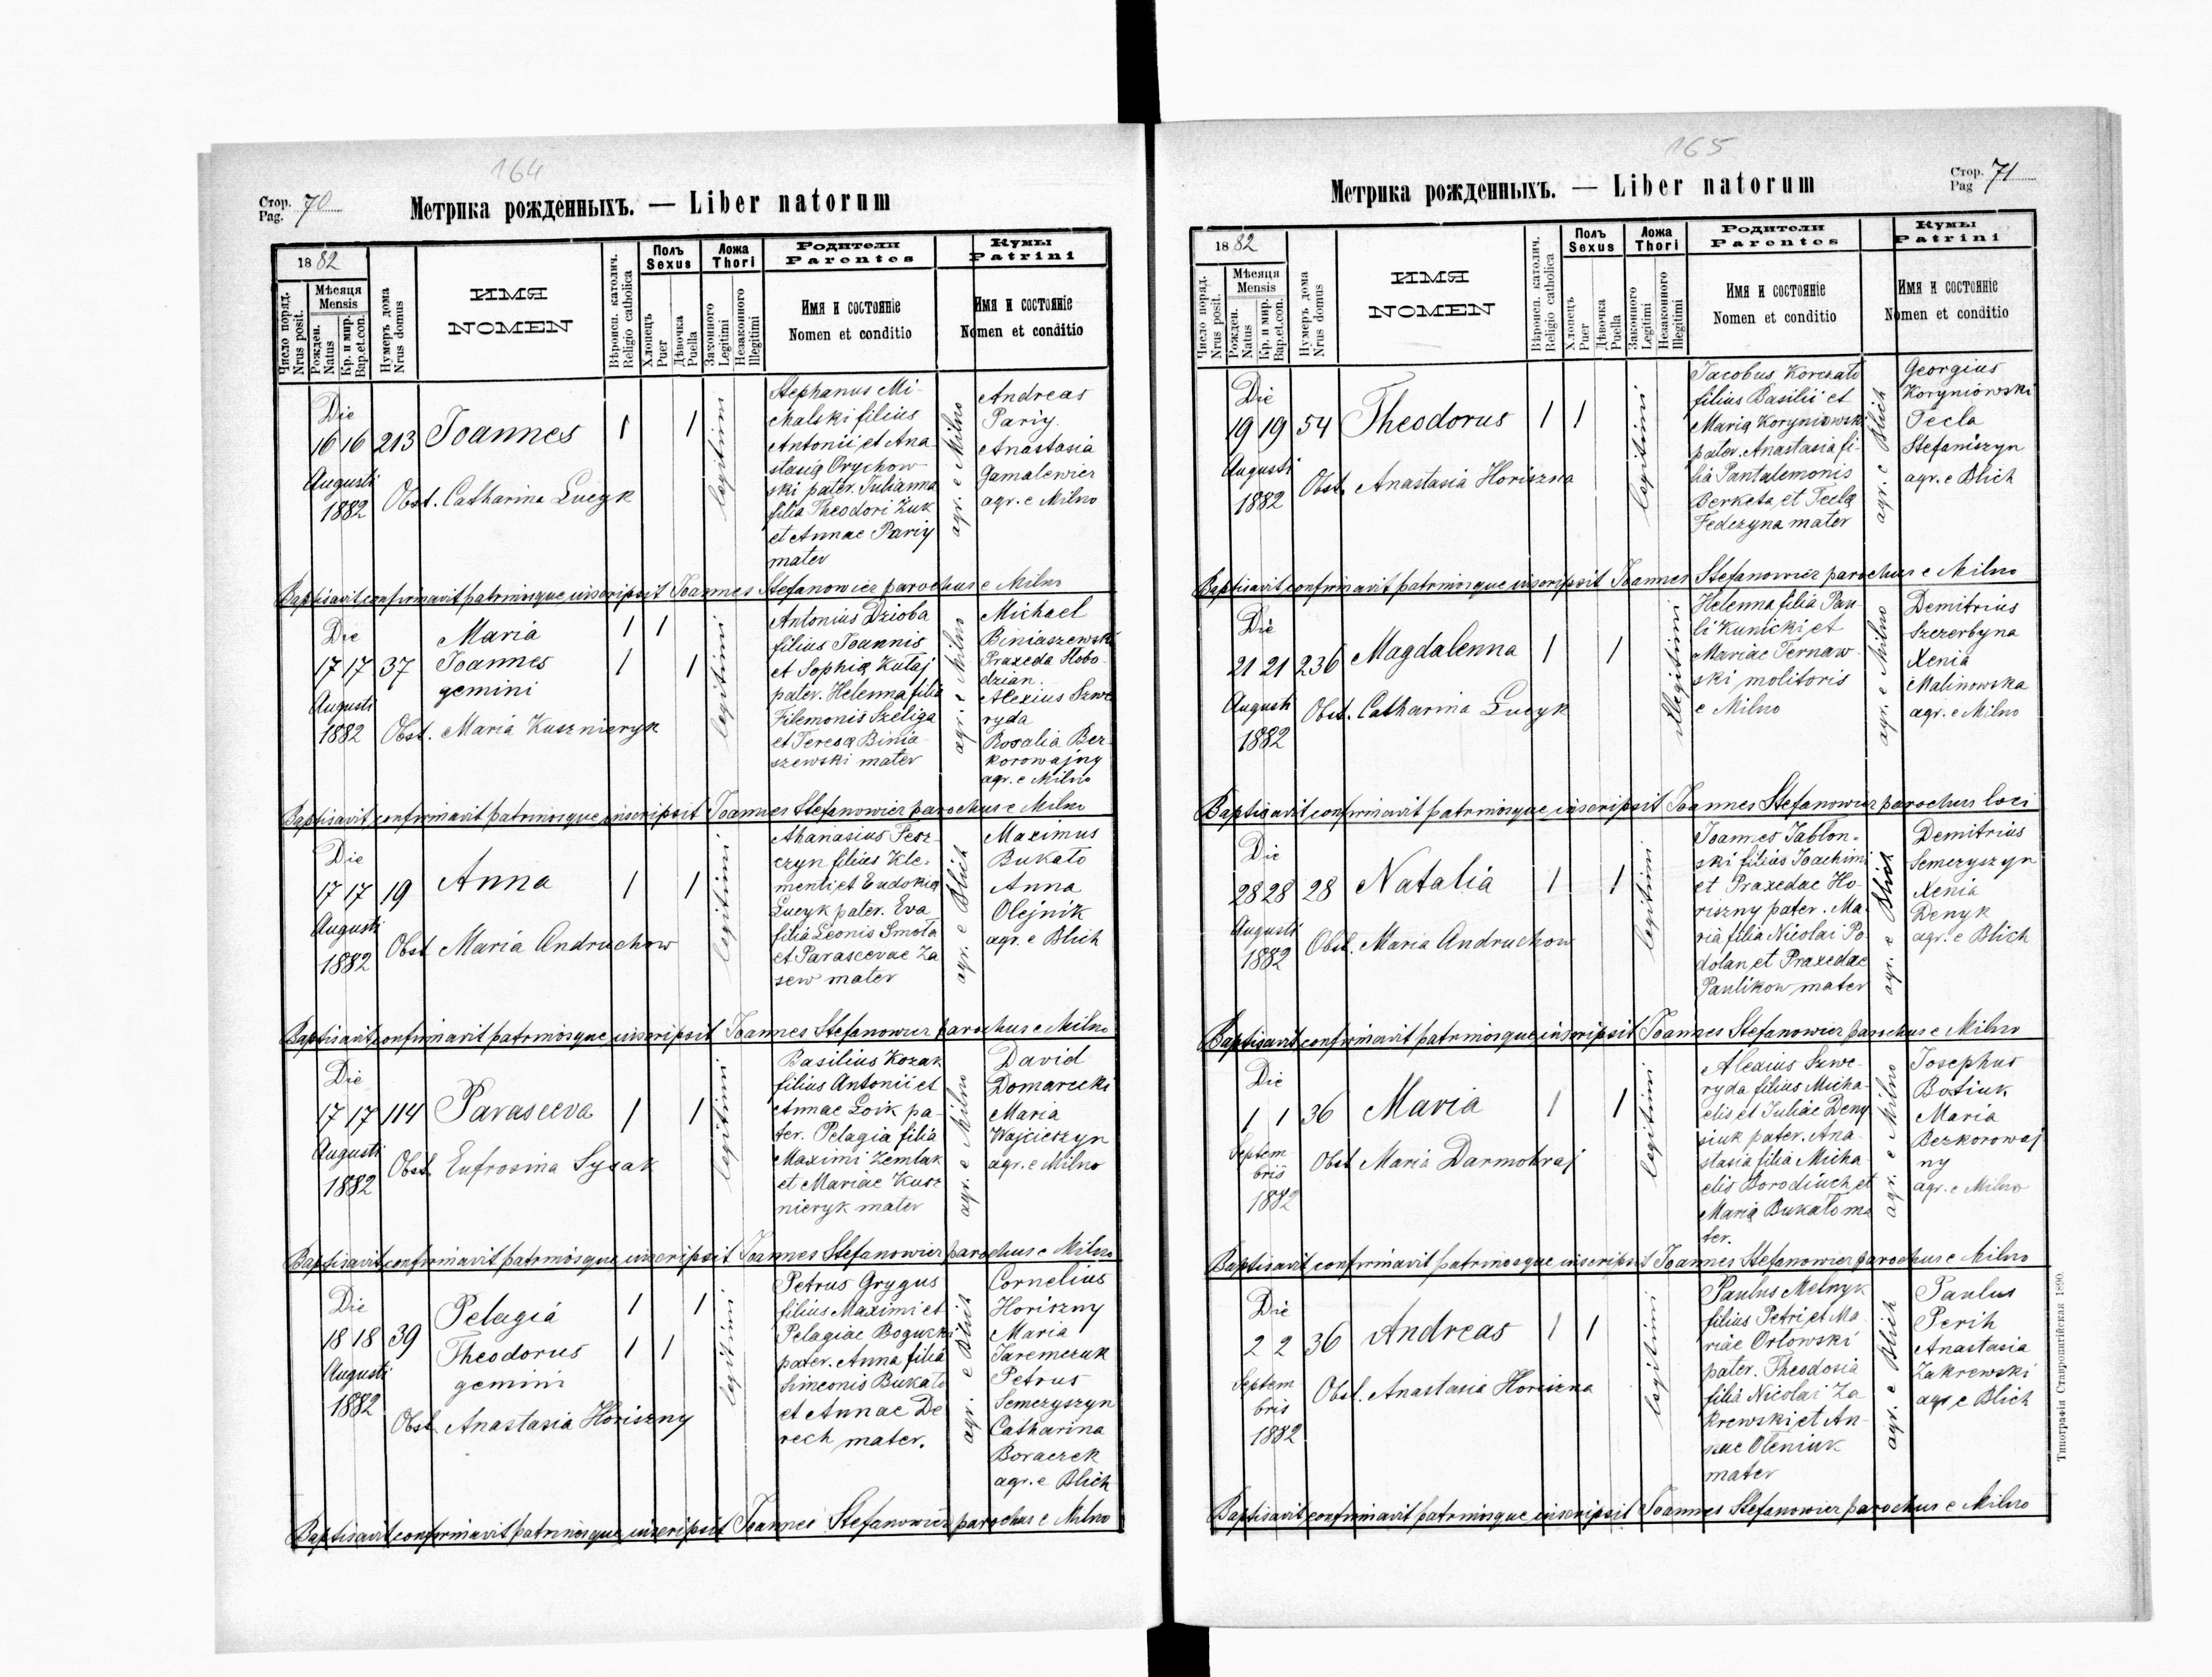 164
Стор. Pag. 70
Метрика рожденныхъ. — Liber natorum
1882
Число поряд. Nrus posit.
Мѣсяця Mensis
Рожден. Natus
Кр. и мир. Bap. et con.
Нумеръ дома Nrus domus
ИМЯ
NOMEN
Вѣроисп. католич. Religio catholica
Полъ Sexus
Хлопецъ Puer
Дѣвочка Puella
Ложа Thori
Законного Legitimi
Незаконного Illegitimi
Родители
Parentes
Имя и состояніе
Nomen et conditio
Кумы
Patrini
Имя и состояніе
Nomen et conditio
Die
16 16 213 Joannes 1 1
Augusti
1882
Obst. Catharina Lucyk
legitimi
Stephanus Mi-
chalski filius
Antonii et Ana
stasia Orychow
ski pater. Julianna
filia Theodori Zuk
et Annae Pariy
mater
agr. e Milno
Andreas
Pariy.
Anastasia
Gamalewicz
agr. e Milno
Baptisavit confirmavit patrinosque inscripsit Joannes Stefanowicz parochus e Milno
Die
17 17 37
Augusti
1882
Maria 1 1
Joannes 1 1
gemini
Obst. Maria Kusznieryk
legitimi
Antonius Dzioba
filius Joannis
et Sophia Kutaj
pater. Helenna filia
Filemonis Szeliga
et Teresa Binia-
szewski mater
agr. e Milno
Michael
Biniaszewski
Praxeda Hobo-
dzian.
Alexius Szwe
ryda
Rosalia Bez-
korowajny
agr. e Milno
Baptisavit confirmavit patrinosque inscripsit Joannes Stefanowicz parochus e Milno
Die
17 17 19 Anna 1 1
Augusti
1882
Obst Maria Andruchow
legitimi
Athanasius Fesz-
czyn filius Kle-
menti et Eudokia
Lucyk pater. Eva
filia Leonis Smota
et Parascevae Za
sew mater
agr. e Blich
Maximus
Bukato
Anna
Olejnik
agr. e Blich
Baptisavit confirmavit patrinosque inscripsit Joannes Stefanowicz parochus e Milno
Die
17 17 114 Parasceva 1 1
Augusti
1882
Obst Eufrosina Sysak
legitimi
Basilius Kozak
filius Antonii et
Annae Loik pa-
ter. Pelagia filia
Maximi Zemlak
et Mariae Kusz
nieryk mater
agr. e Milno
David
Domarecki
Maria
Wajcieszyn
agr. e Milno
Baptisavit confirmavit patrinosque inscripsit Joannes Stefanowicz parochus e Milno
Die
18 18 39
Augusti
1882
Pelagia 1 1
Theodorus 1 1
gemini
Obst Anastasia Horiszny
legitimi
Petrus Grygus
filius Maximi et
Pelagiae Boguzki
pater. Anna filia
Simeonis Bukato
et Annae De
rech mater.
agr. e Blich
Cornelius
Horiszny
Maria
Jaremczuk
Petrus
Semczyszyn
Catharina
Boraczek
agr. e Blich
Baptisavit confirmavit patrinosque inscripsit Joannes Stefanowicz parochus e Milno
165
Стор. Pag 71
Метрика рожденныхъ. — Liber natorum
1882
Число поряд. Nrus posit.
Мѣсяця Mensis
Рожден. Natus
Кр. и мир. Bap. et con.
Нумеръ дома Nrus domus
ИМЯ
NOMEN
Вѣроисп. католич. Religio catholica
Полъ Sexus
Хлопецъ Puer
Дѣвочка Puella
Ложа Thori
Законного Legitimi
Незаконного Illegitimi
Родители
Parentes
Имя и состояніе
Nomen et conditio
Кумы
Patrini
Имя и состояніе
Nomen et conditio
Die
19 19 54 Theodorus 1 1
Augusti
1882
Obst. Anastasia Horiszna
legitimi
Jacobus Korchato
filius Basilii et
Maria Koryniowski
pater. Anastasia fi-
lia Pantalemonis
Berketa, et Tecla
Fedczyna mater
agr. e Blich
Georgius
Koryniowski
Tecla
Stefaniszyn
agr. e Blich
Baptisavit confirmavit patrinosque inscripsit Joannes Stefanowicz parochus e Milno
Die
21 21 236 Magdalenna 1 1
Augusti
1882
Obst. Catharina Lucyk
illegitimi
Helenna filia Pau-
li Kunicki et
Mariae Ternaw-
ski molitoris
e Milno
agr. e Milno
Demitrius
Szczerbyna
Xenia
Malinowska
agr. e Milno
Baptisavit confirmavit patrinosque inscripsit Joannes Stefanowicz parochus loci
Die
28 28 28 Natalia 1 1
Augusti
1882
Obst. Maria Andruchow
legitimi
Joannes Jablon-
ski filius Joachimi
et Praxedae Ho-
riszny pater. Ma-
ria filia Nicolai Po
dolan et Praxedae
Paulikow mater
agr. e Blich
Demitrius
Semczyszyn
Xenia
Denyk
agr. e Blich
Baptisavit confirmavit patrinosque inscripsit Joannes Stefanowicz parochus e Milno
Die
1 1 36 Maria 1 1
Septem
bris
1882
Obst Maria Darmohraj
legitimi
Alexius Szwe-
ryda filius Micha-
elis et Juliae Deny
siuk pater. Ana-
stasia filia Micha-
elis Borodiuch, et
Maria Bukato ma
ter.
agr. e Milno
Josephus
Botiuk
Maria
Bezkorowaj
ny
agr. e Milno
Baptisavit confirmavit patrinosque inscripsit Joannes Stefanowicz parochus e Milno
Die
2 2 36 Andreas 1 1
Septem
bris
1882
Obst. Anastasia Horiszna
legitimi
Paulus Melnyk
filius Petri et Ma-
riae Orlowski
pater. Theodosia
filia Nicolai Za
krewski et An-
nae Oleniuk
mater
agr. e Blich
Paulus
Perih
Anastasia
Zakrewski
agr. e Blich
Baptisavit confirmavit patrinosque inscripsit Joannes Stefanowicz parochus e Milno
Типографія Ставропигійская 1890.